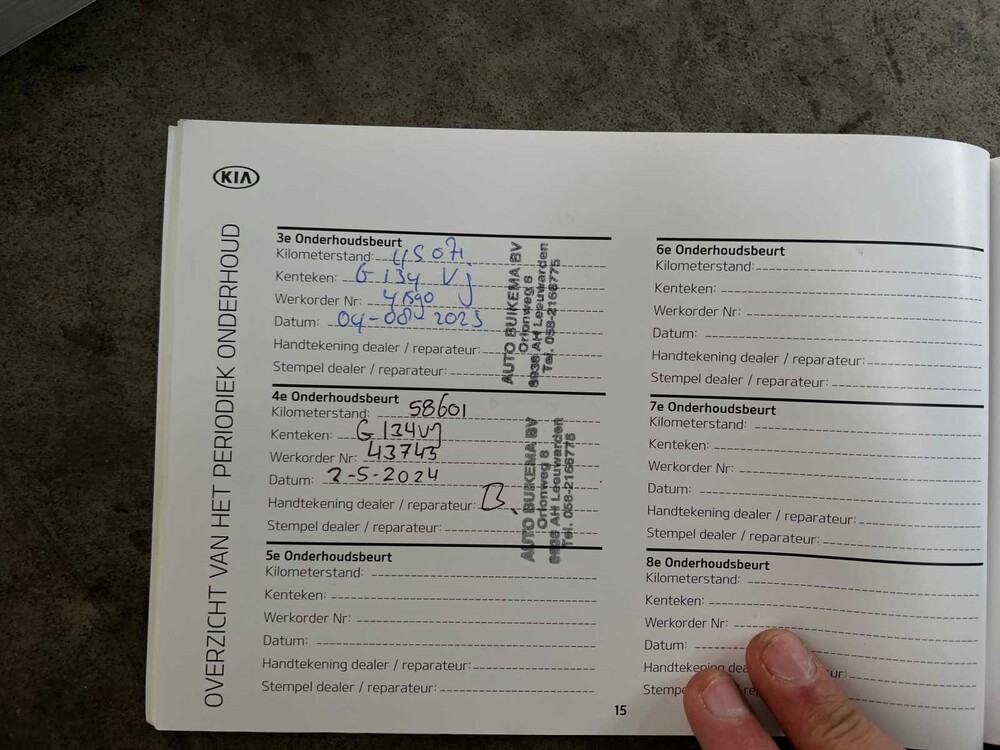 KIA
OVERZICHT VAN HET PERIODIEK ONDERHOUD
3e Onderhoudsbeurt
Kilometerstand:
Kenteken: G 134 VJ
Werkorder Nr:
Datum: 04-08-2023
Handtekening dealer / reparateur:
Stempel dealer / reparateur:
AUTO BUIKEMA BV
Orionweg 8
8938 AH Leeuwarden
Tel. 058-2166775
4e Onderhoudsbeurt
Kilometerstand: 58601
Kenteken: G 134VJ
Werkorder Nr: 43745
Datum: 2-5-2024
Handtekening dealer / reparateur: B.
Stempel dealer / reparateur:
AUTO BUIKEMA BV
Orionweg 8
8938 AH Leeuwarden
Tel. 058-2166775
5e Onderhoudsbeurt
Kilometerstand:
Kenteken:
Werkorder Nr:
Datum:
Handtekening dealer / reparateur:
Stempel dealer / reparateur:
6e Onderhoudsbeurt
Kilometerstand:
Kenteken:
Werkorder Nr:
Datum:
Handtekening dealer / reparateur:
Stempel dealer / reparateur:
7e Onderhoudsbeurt
Kilometerstand:
Kenteken:
Werkorder Nr:
Datum:
Handtekening dealer / reparateur:
Stempel dealer / reparateur:
8e Onderhoudsbeurt
Kilometerstand:
Kenteken:
Werkorder Nr:
Datum:
Handtekening dea ur:
Stemp / re
15